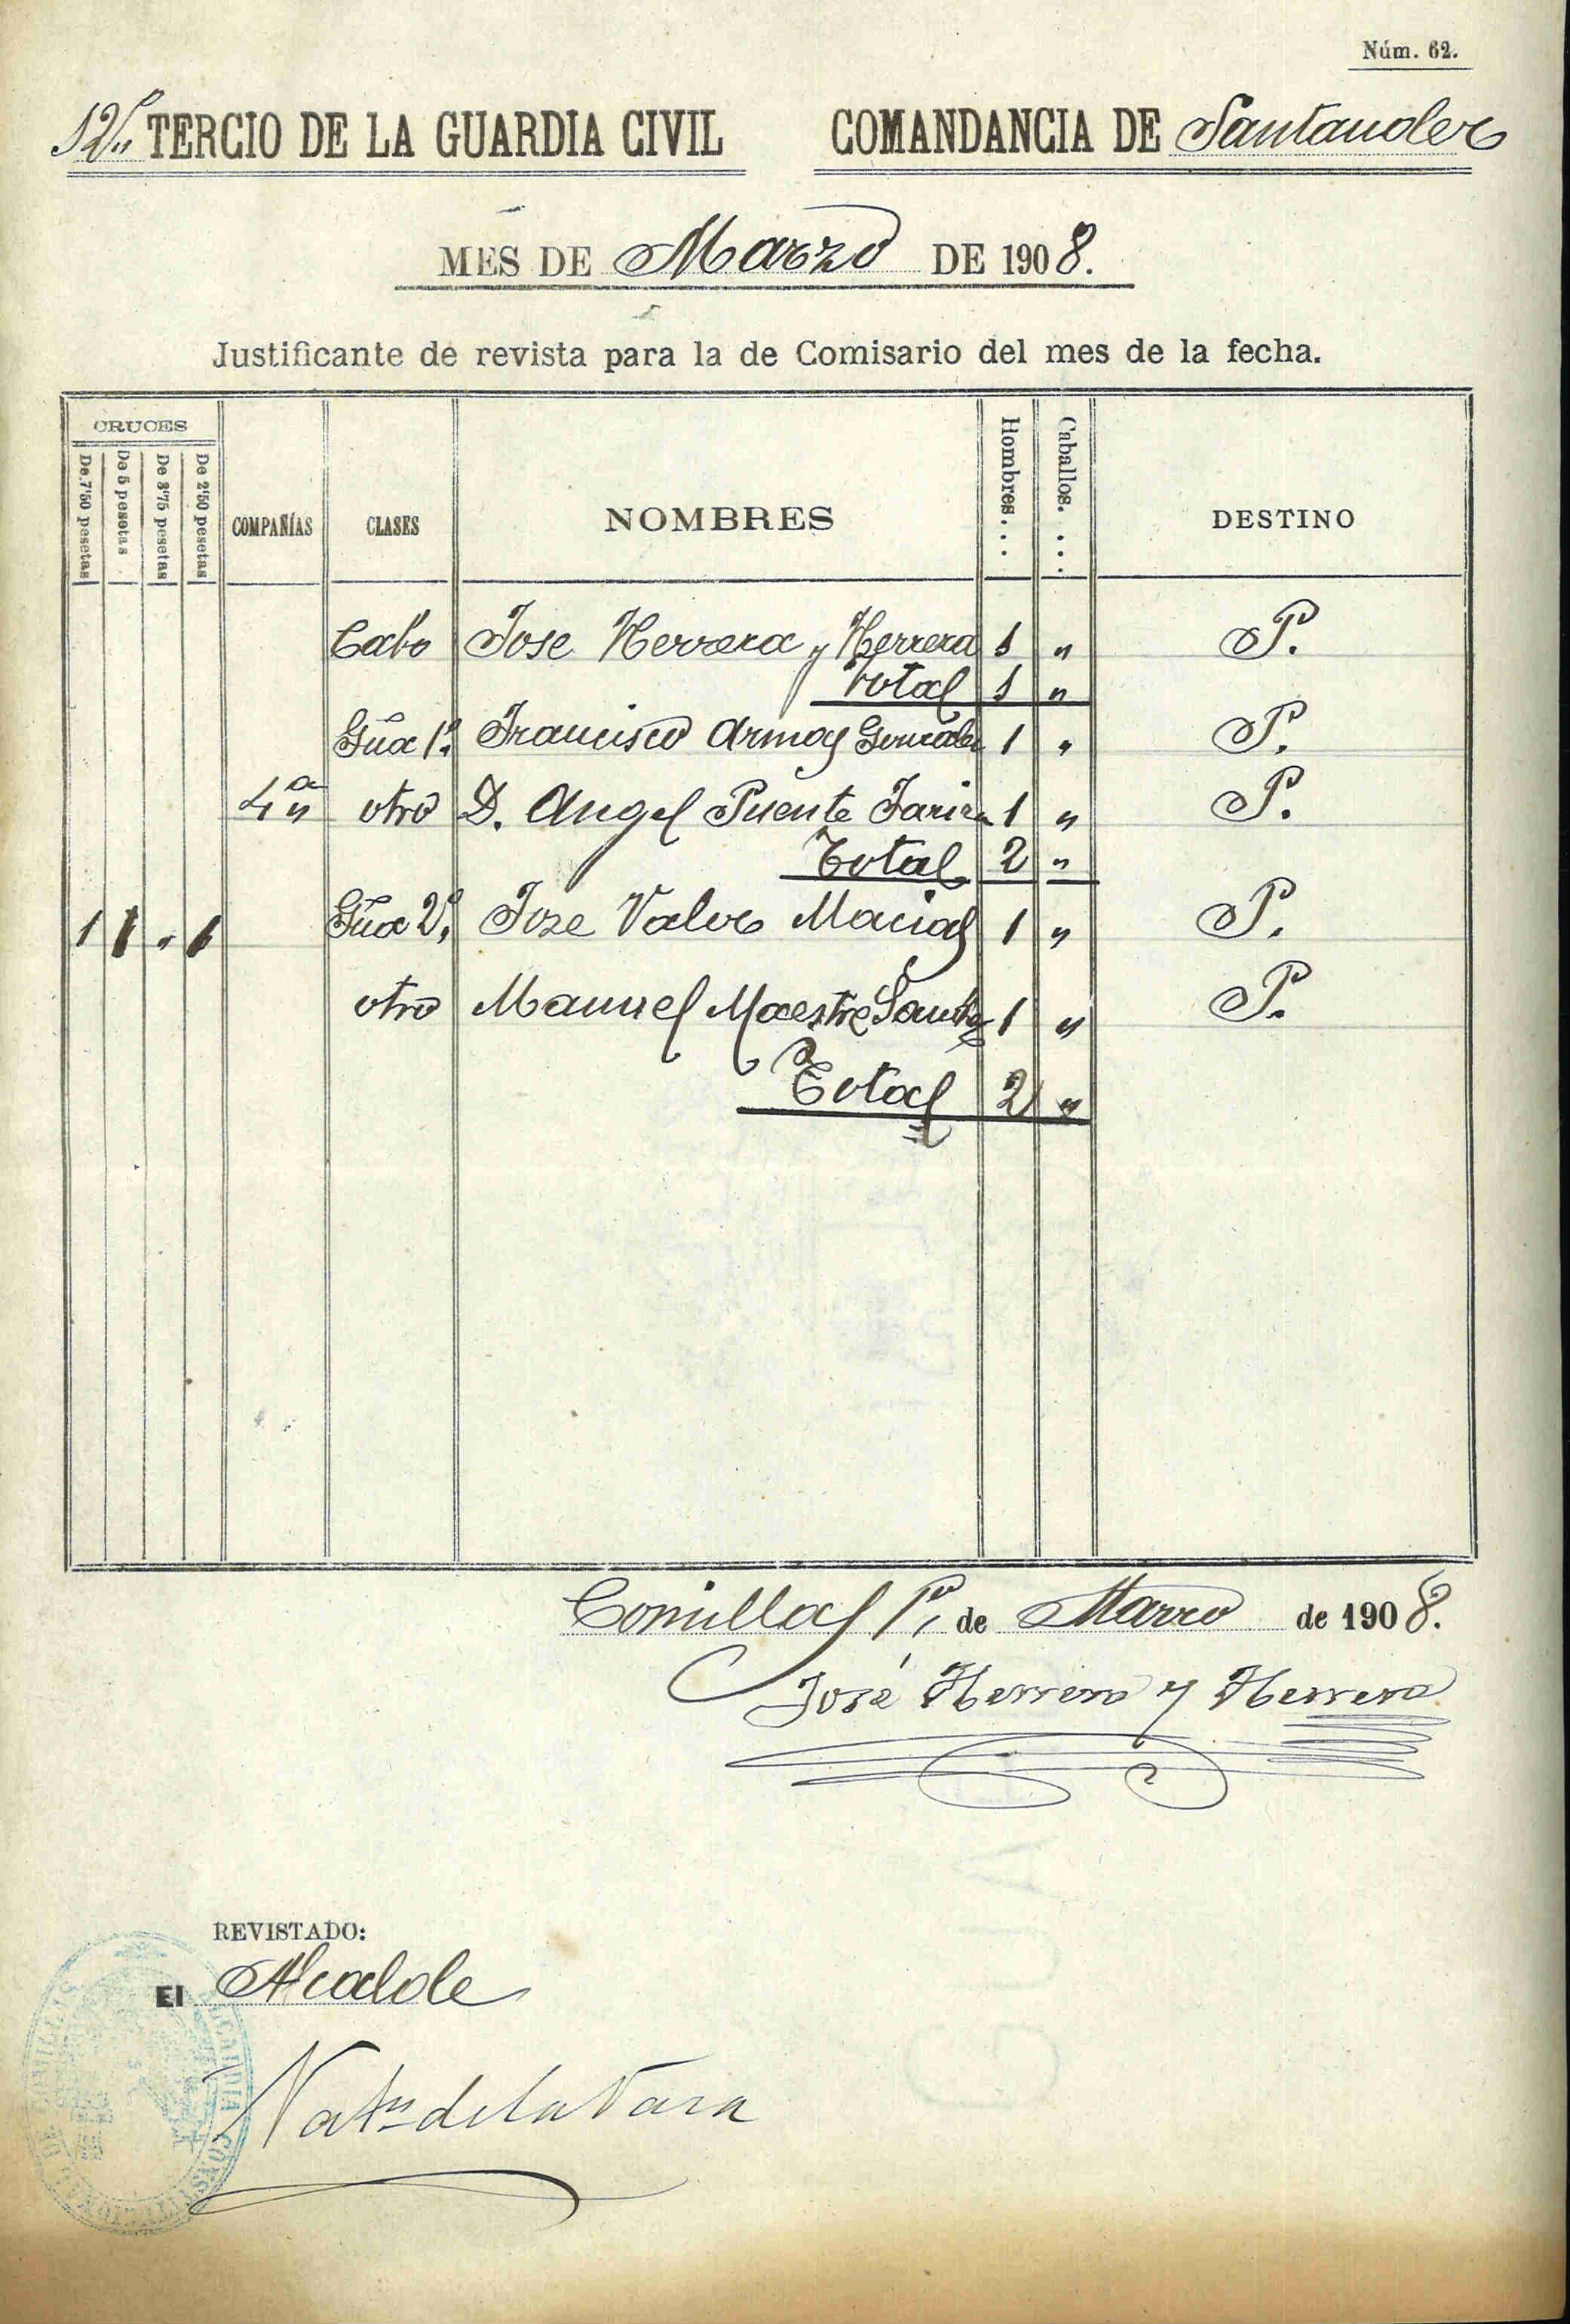 Núm. 62.
12º TERCIO DE LA GUARDIA CIVIL COMANDANCIA DE Santander
MES DE Marzo DE 1908.
Justificante de revista para la de Comisario del mes de la fecha.
CRUCES
De 7'50 pesetas De 5 pesetas De 3'75 pesetas De 2'50 pesetas COMPAÑÍAS CLASES NOMBRES Hombres... Caballos.... DESTINO
Cabo Jose Herrera y Herrera 1 " P.
Total 1 "
Gũa 1º Francisco Armas Gonzalez 1 " P.
4ª otro D. Angel Puente 1 " P.
Total 2 "
1 1 " 1 Gũa 2º Jose Valor Macias 1 " P.
otro Manuel Maestre Sanchez 1 " P.
Total 2 "
Comillas 1º de Marzo de 1908.
José Herrera y Herrera
REVISTADO:
El Alcalde
de la Vara
ALCALDIA CONSTITUCIONAL DE COMILLAS